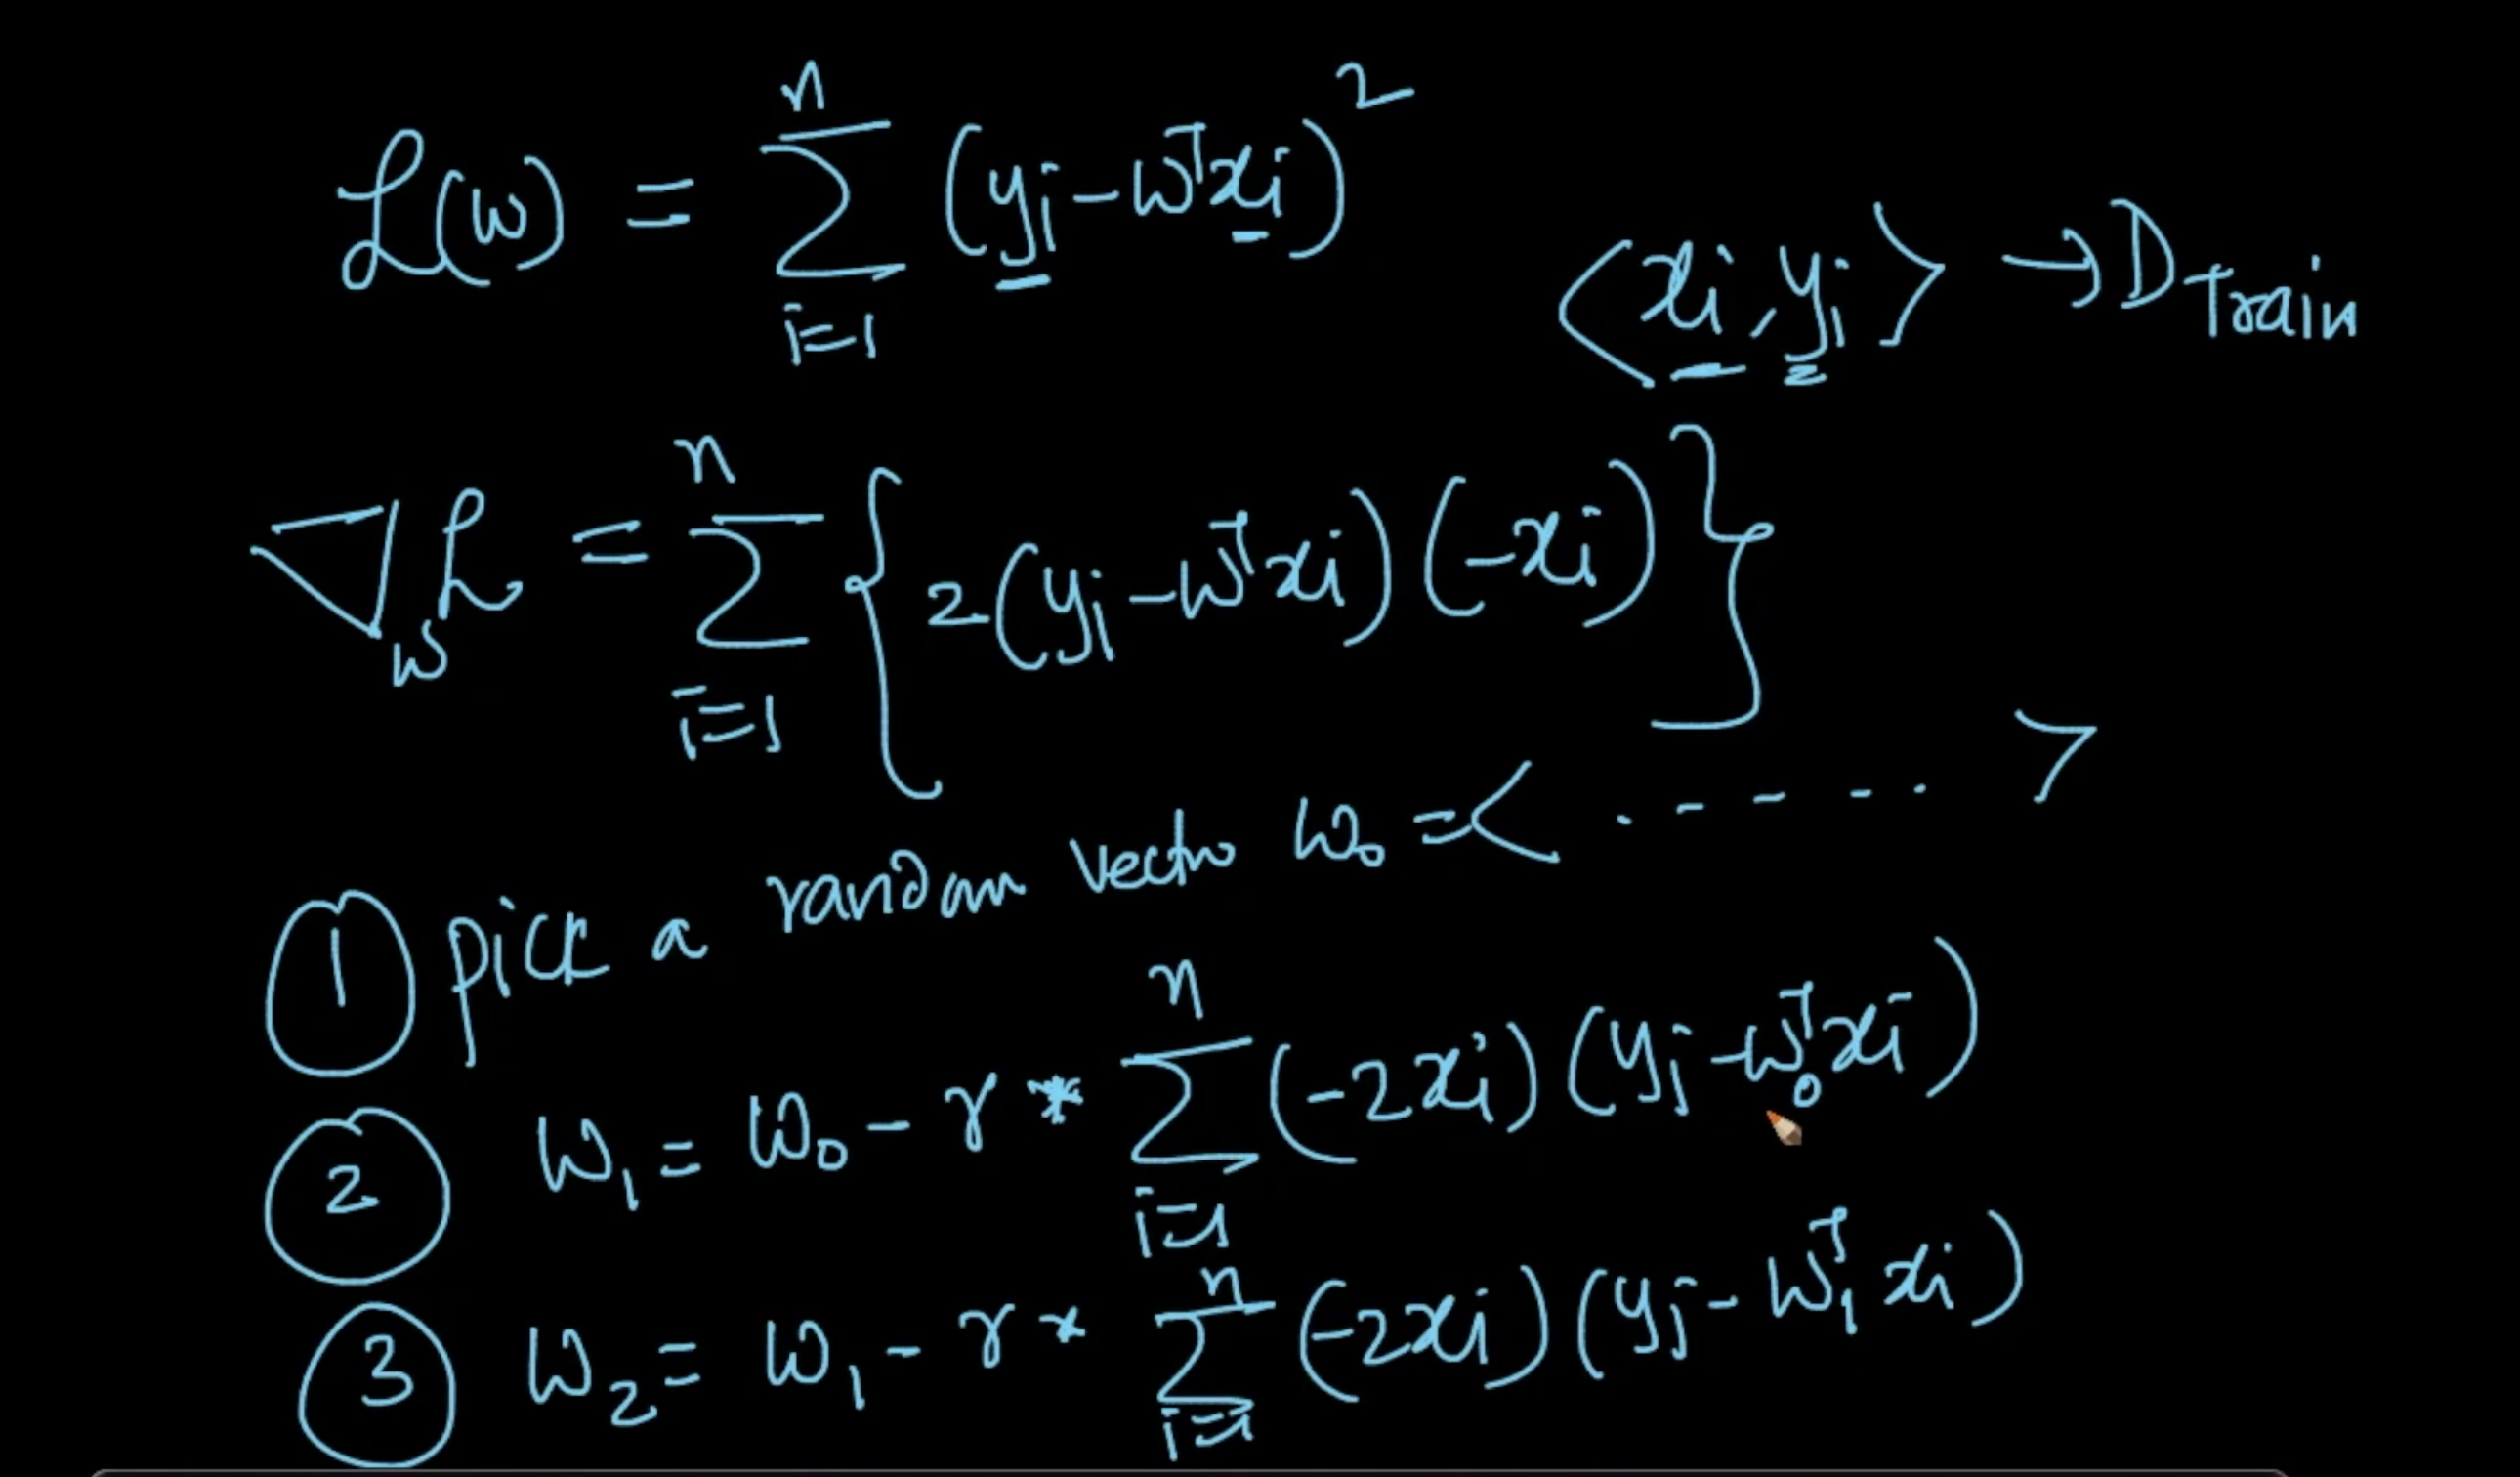 ℒ(w) = ∑_{i=1}^{n} (yᵢ - wᵀxᵢ)²
⟨xᵢ, yᵢ⟩ → D_Train
∇_w ℒ = ∑_{i=1}^{n} { 2(yᵢ - wᵀxᵢ)(-xᵢ) }
① pick a random vector w₀ = < . - - - - . >
② w₁ = w₀ - r * ∑_{i=1}^{n} (-2xᵢ)(yᵢ - w₀ᵀxᵢ)
③ w₂ = w₁ - r * ∑_{i=1}^{n} (-2xᵢ)(yᵢ - w₁ᵀxᵢ)